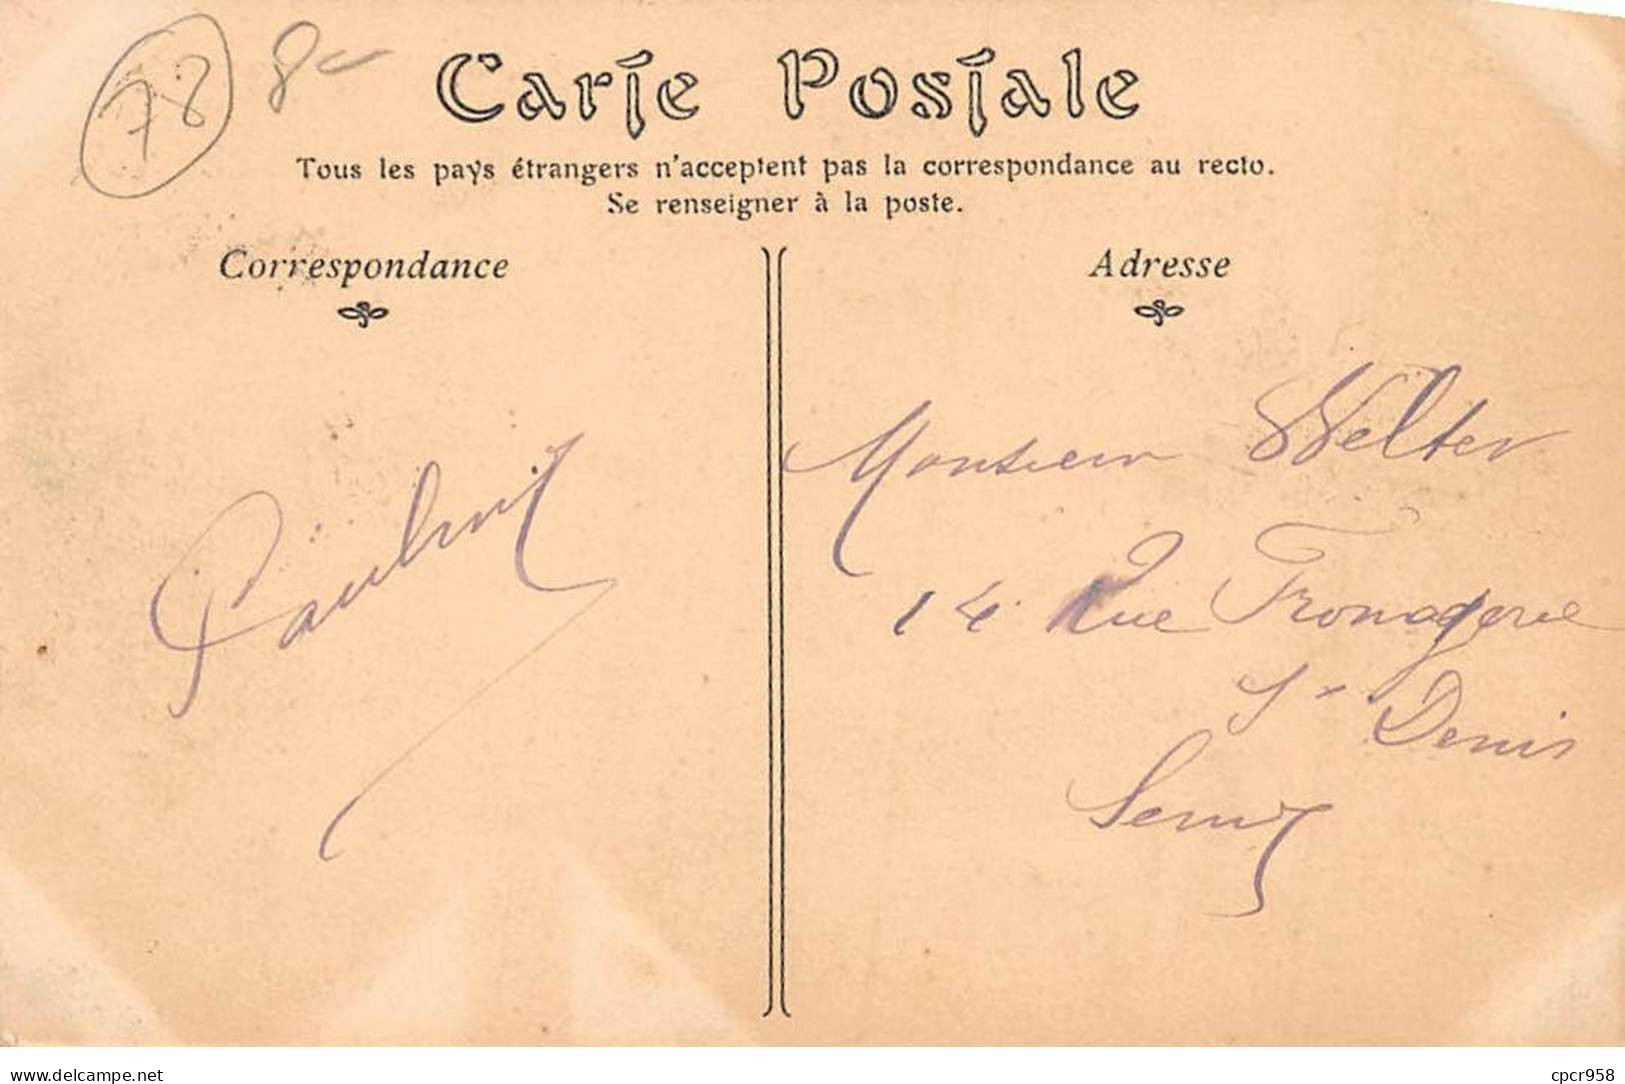 78 8-
Carte Postale
Tous les pays étrangers n'acceptent pas la correspondance au recto.
Se renseigner à la poste.
Correspondance
Adresse
Monsieur Welter
14 Rue Fromagerie
St Denis
Seine
www.delcampe.net
cpcr958